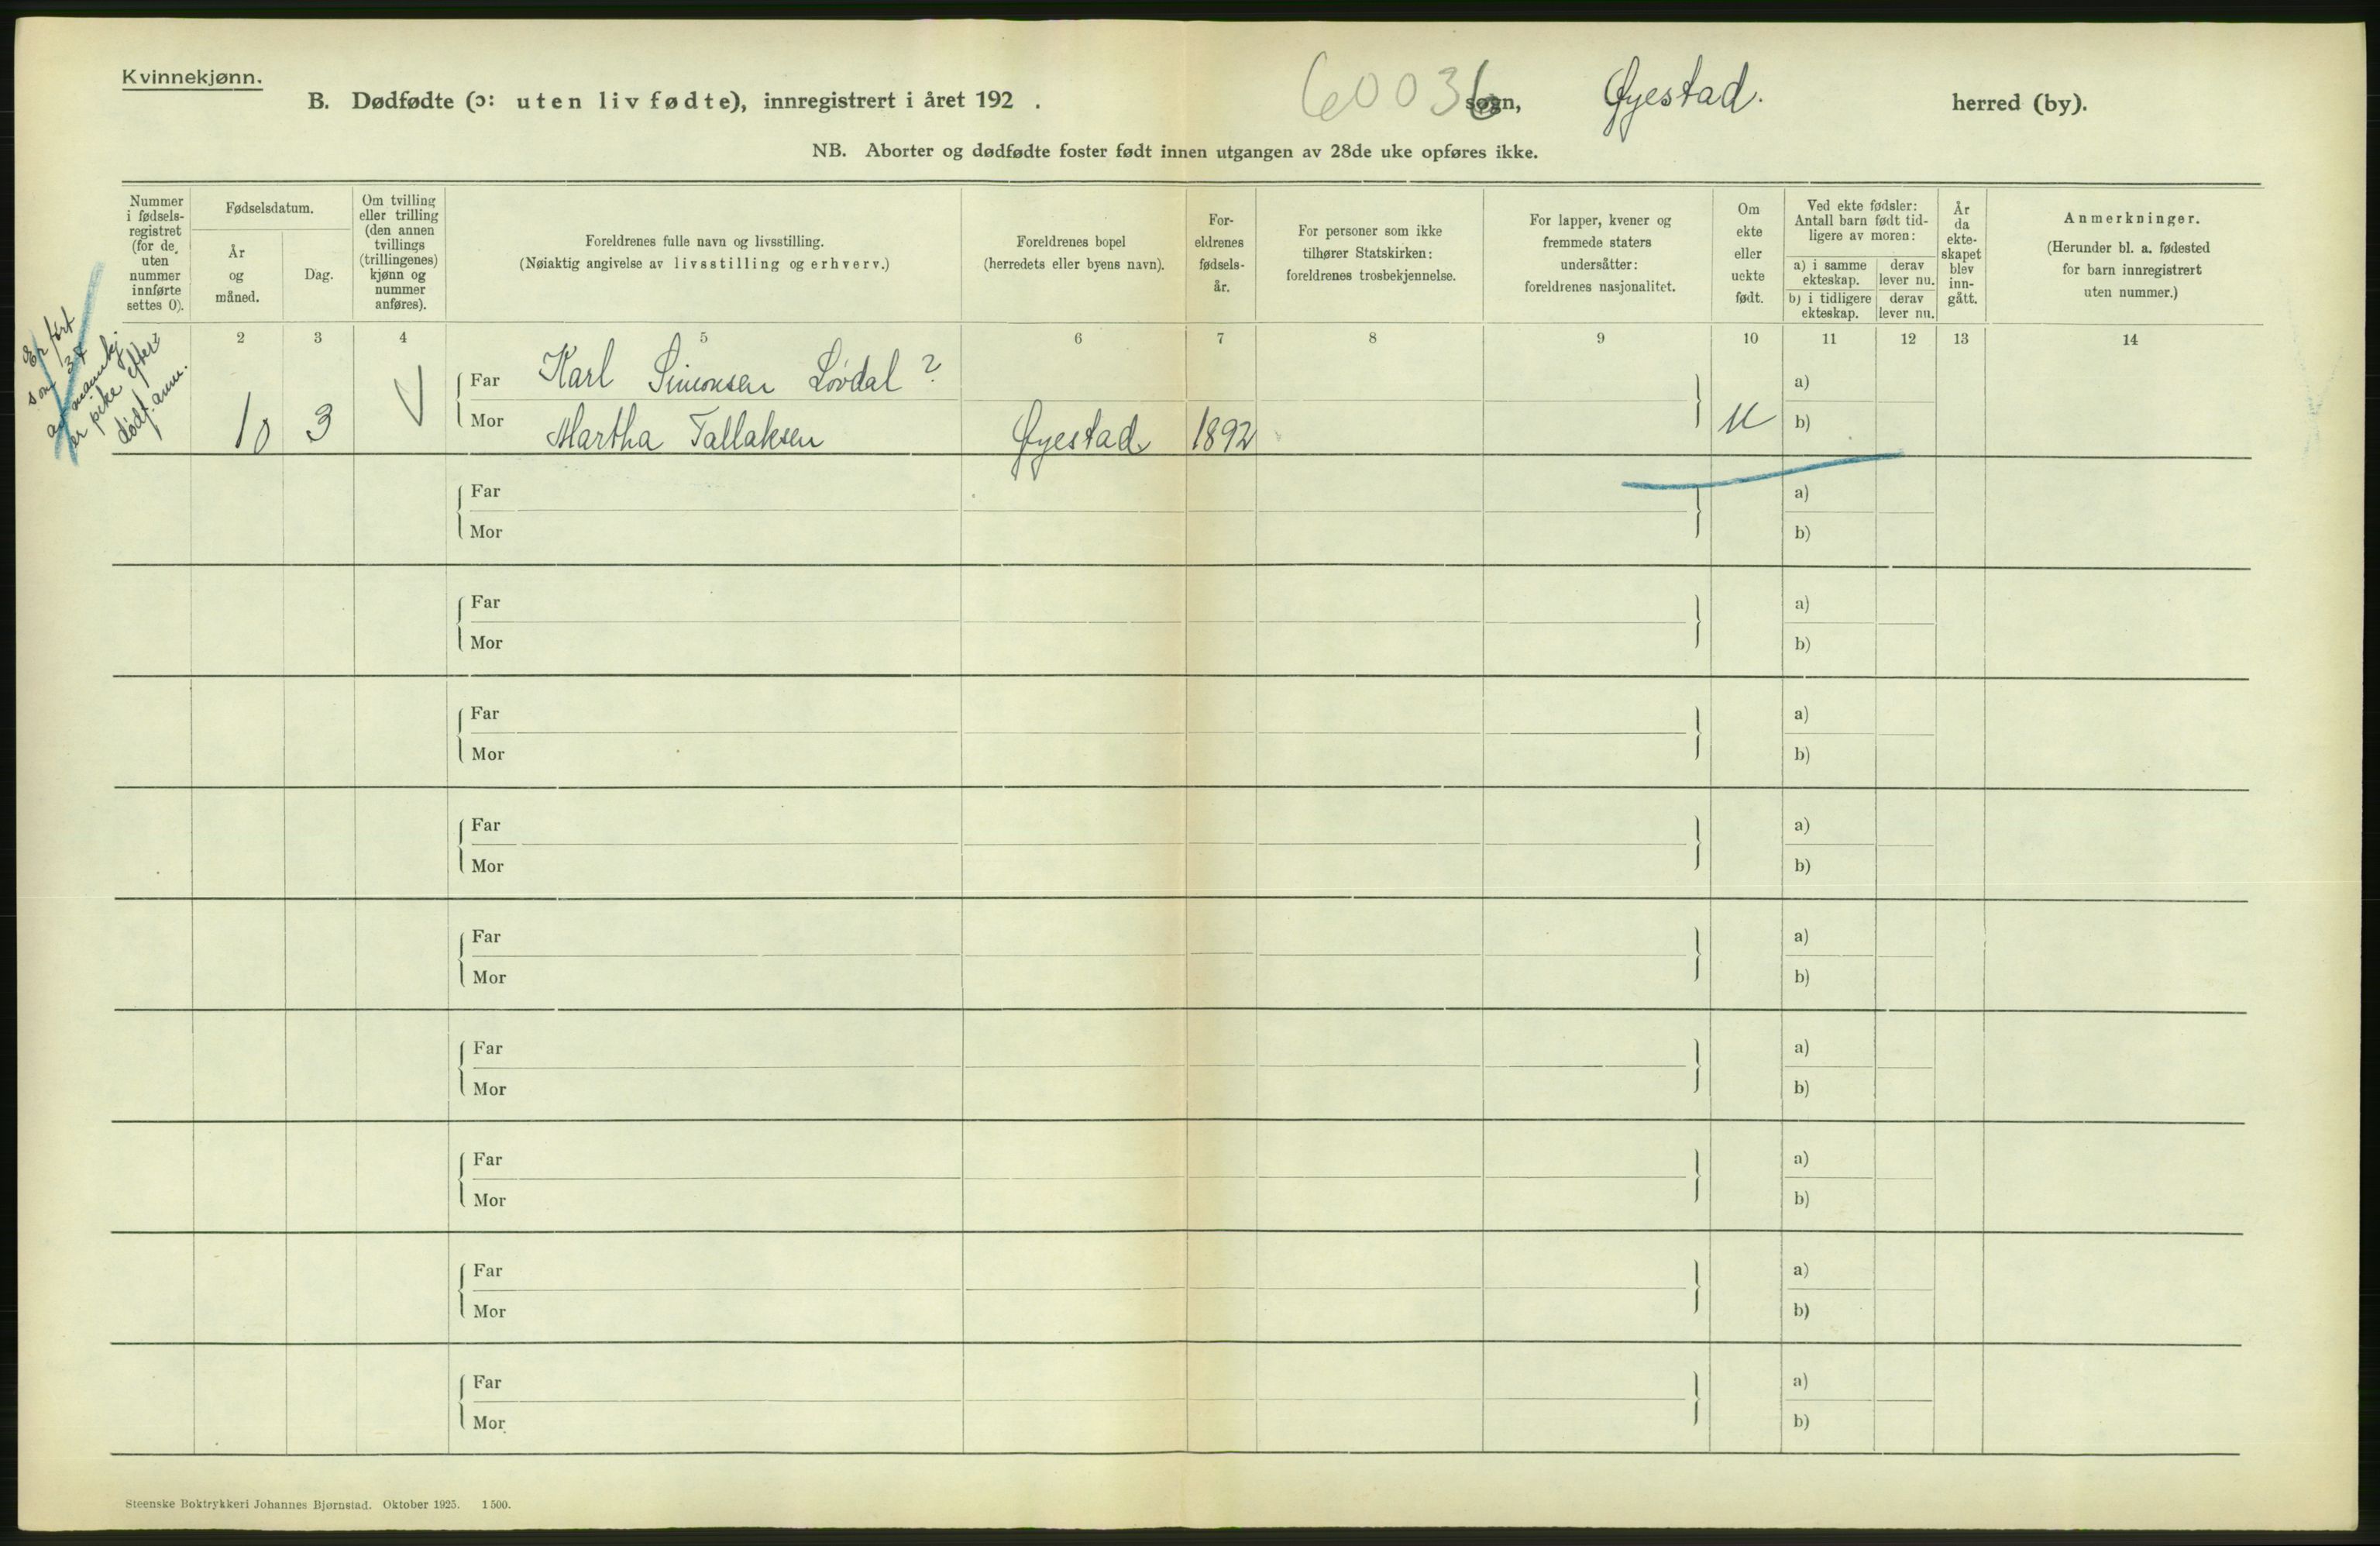 Kvinnekjønn.
B. Dødfødte (ɔ: uten liv fødte), innregistrert i året 192 . 60036 sogn, Øyestad. herred (by).
NB. Aborter og dødfødte foster født innen utgangen av 28de uke opføres ikke.
Nummer
i fødsels-
registret
(for de
uten
nummer
innførte
settes 0).
Fødselsdatum.
År
og
måned.
Dag.
Om tvilling
eller trilling
(den annen
tvillings
(trillingenes)
kjønn og
nummer
anføres).
Foreldrenes fulle navn og livsstilling.
(Nøiaktig angivelse av livsstilling og erhverv.)
Foreldrenes bopel
(herredets eller byens navn).
For-
eldrenes
fødsels-
år.
For personer som ikke
tilhører Statskirken:
foreldrenes trosbekjennelse.
For lapper, kvener og
fremmede staters
undersåtter:
foreldrenes nasjonalitet.
Om
ekte
eller
uekte
født.
Ved ekte fødsler:
Antall barn født tid-
ligere av moren:
a) i samme
ekteskap.
derav
lever nu.
b) i tidligere
ekteskap.
derav
lever nu.
År
da
ekte-
skapet
blev
inn-
gått.
Anmerkninger.
(Herunder bl. a. fødested
for barn innregistrert
uten nummer.)
2 3 4 5 6 7 8 9 10 11 12 13 14
Er ført
som 37
av mannkj.
er pike efter
dødf. anm.
Far Karl Simonsen Løvdal ? a)
10 3 V Mor Martha Tallaksen Øyestad 1892 U b)
Far a)
Mor b)
Far a)
Mor b)
Far a)
Mor b)
Far a)
Mor b)
Far a)
Mor b)
Far a)
Mor b)
Far a)
Mor b)
Far a)
Mor b)
Far a)
Mor b)
Steenske Boktrykkeri Johannes Bjørnstad. Oktober 1925. 1500.